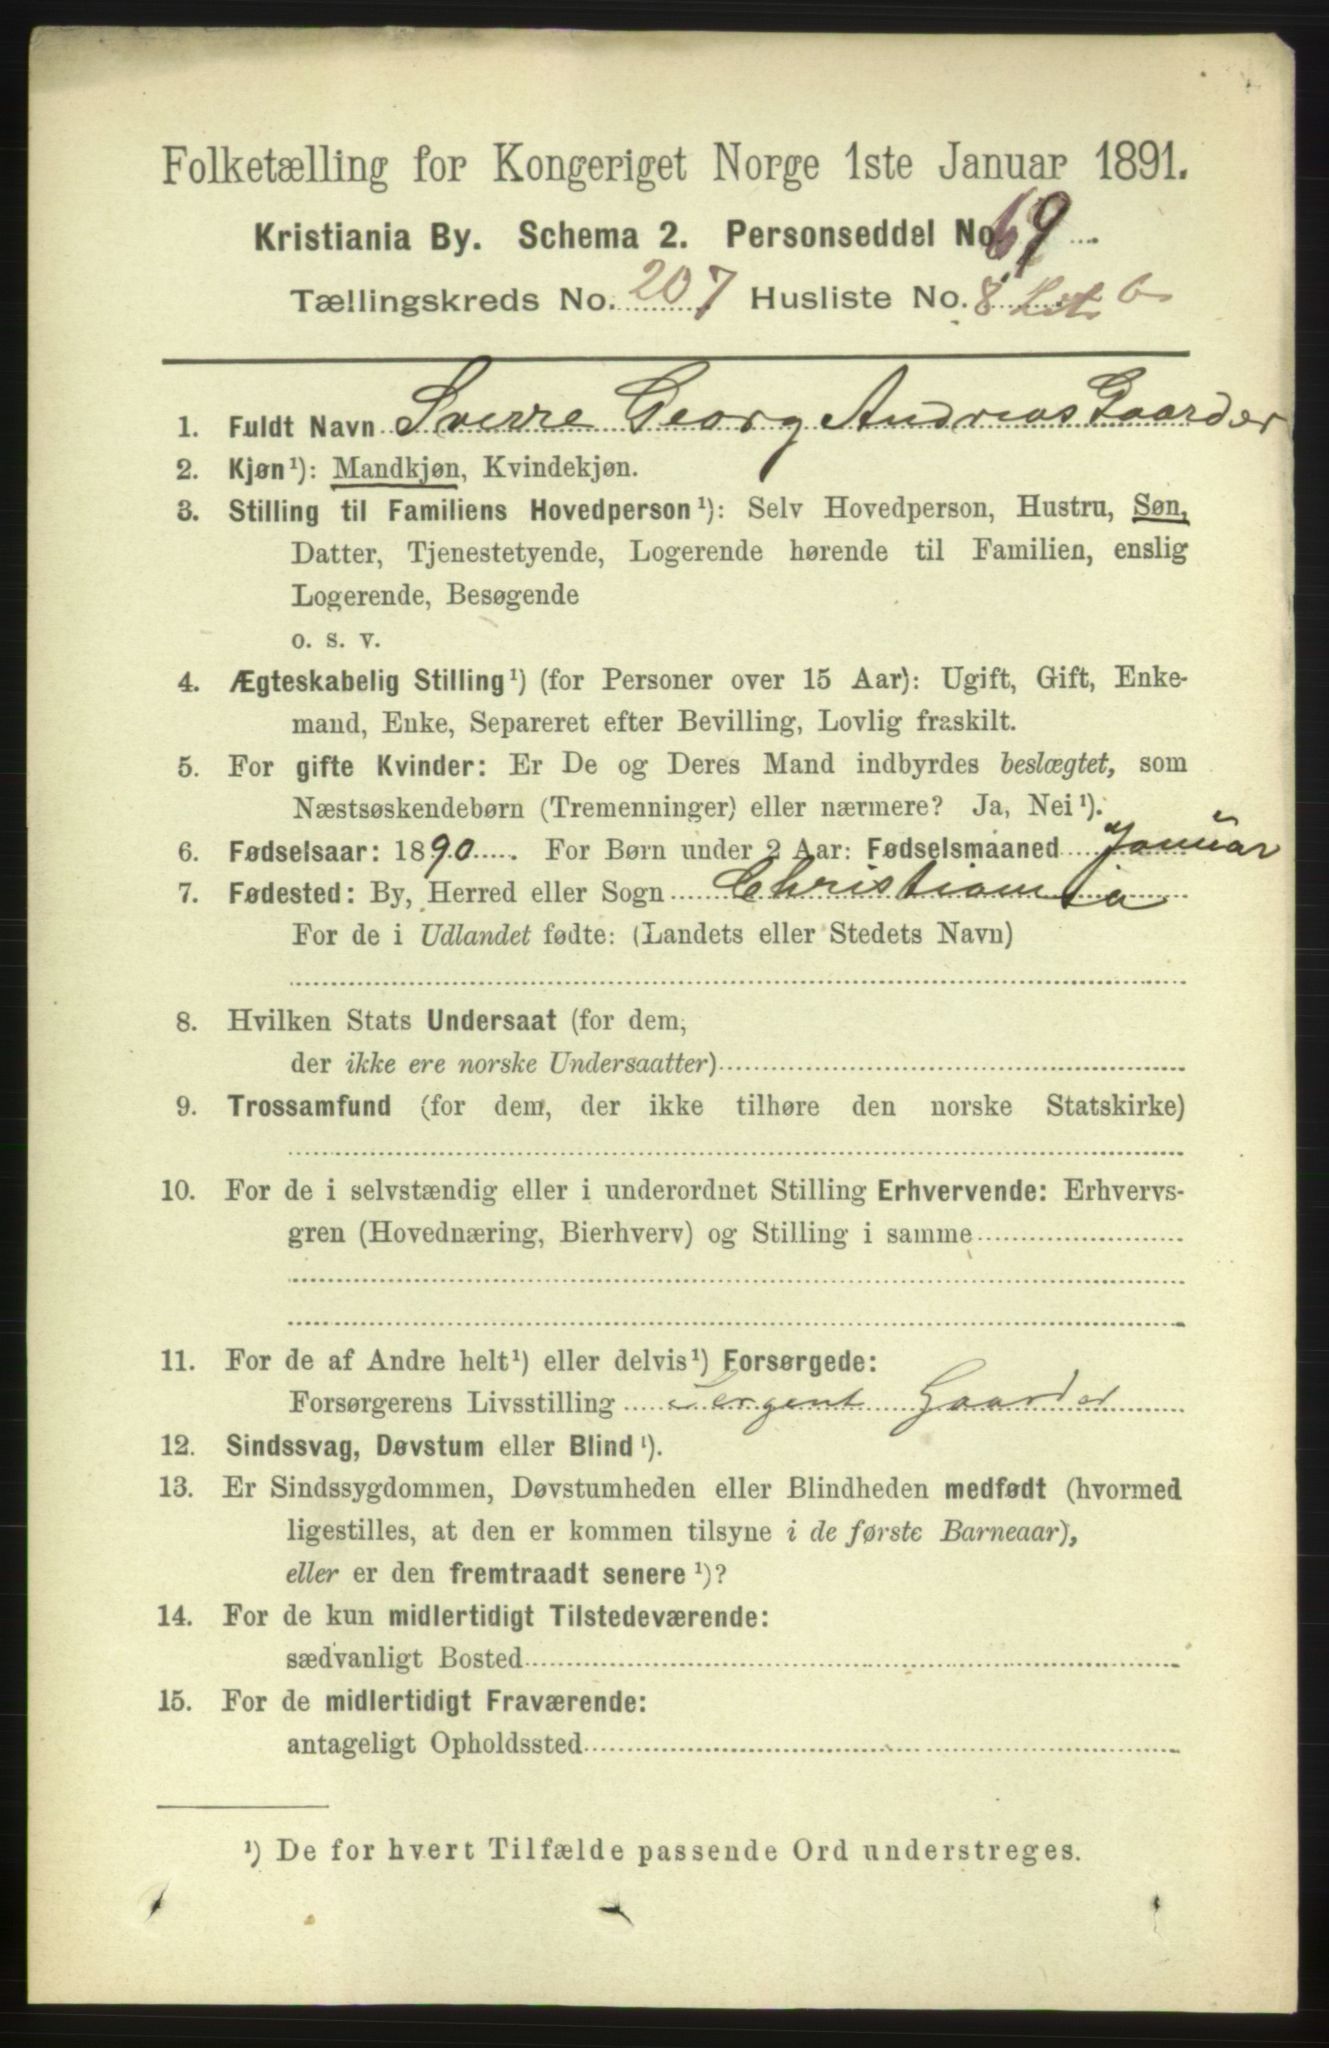 Folketælling for Kongeriget Norge 1ste Januar 1891.
Kristiania By. Schema 2. Personseddel No. 69
Tællingskreds No. 207 Husliste No. 8 b
1. Fuldt Navn Sverre Georg Andreas Gaarder
2. Kjøn¹): Mandkjøn, Kvindekjøn.
3. Stilling til Familiens Hovedperson¹): Selv Hovedperson, Hustru, Søn,
Datter, Tjenestetyende, Logerende hørende til Familien, enslig
Logerende, Besøgende
o. s. v.
4. Ægteskabelig Stilling¹) (for Personer over 15 Aar): Ugift, Gift, Enke-
mand, Enke, Separeret efter Bevilling, Lovlig fraskilt.
5. For gifte Kvinder: Er De og Deres Mand indbyrdes beslægtet, som
Næstsøskendebørn (Tremenninger) eller nærmere? Ja, Nei¹).
6. Fødselsaar: 1890. For Børn under 2 Aar: Fødselsmaaned Januar
7. Fødested: By, Herred eller Sogn Christiania
For de i Udlandet fødte: (Landets eller Stedets Navn)
8. Hvilken Stats Undersaat (for dem,
der ikke ere norske Undersaatter)
9. Trossamfund (for dem, der ikke tilhøre den norske Statskirke)
10. For de i selvstændig eller i underordnet Stilling Erhvervende: Erhvervs-
gren (Hovednæring, Bierhverv) og Stilling i samme
11. For de af Andre helt¹) eller delvis¹) Forsørgede:
Forsørgerens Livsstilling Sergent Gaarder
12. Sindssvag, Døvstum eller Blind¹).
13. Er Sindssygdommen, Døvstumheden eller Blindheden medfødt (hvormed
ligestilles, at den er kommen tilsyne i de første Barneaar),
eller er den fremtraadt senere¹)?
14. For de kun midlertidigt Tilstedeværende:
sædvanligt Bosted
15. For de midlertidigt Fraværende:
antageligt Opholdssted
¹) De for hvert Tilfælde passende Ord understreges.